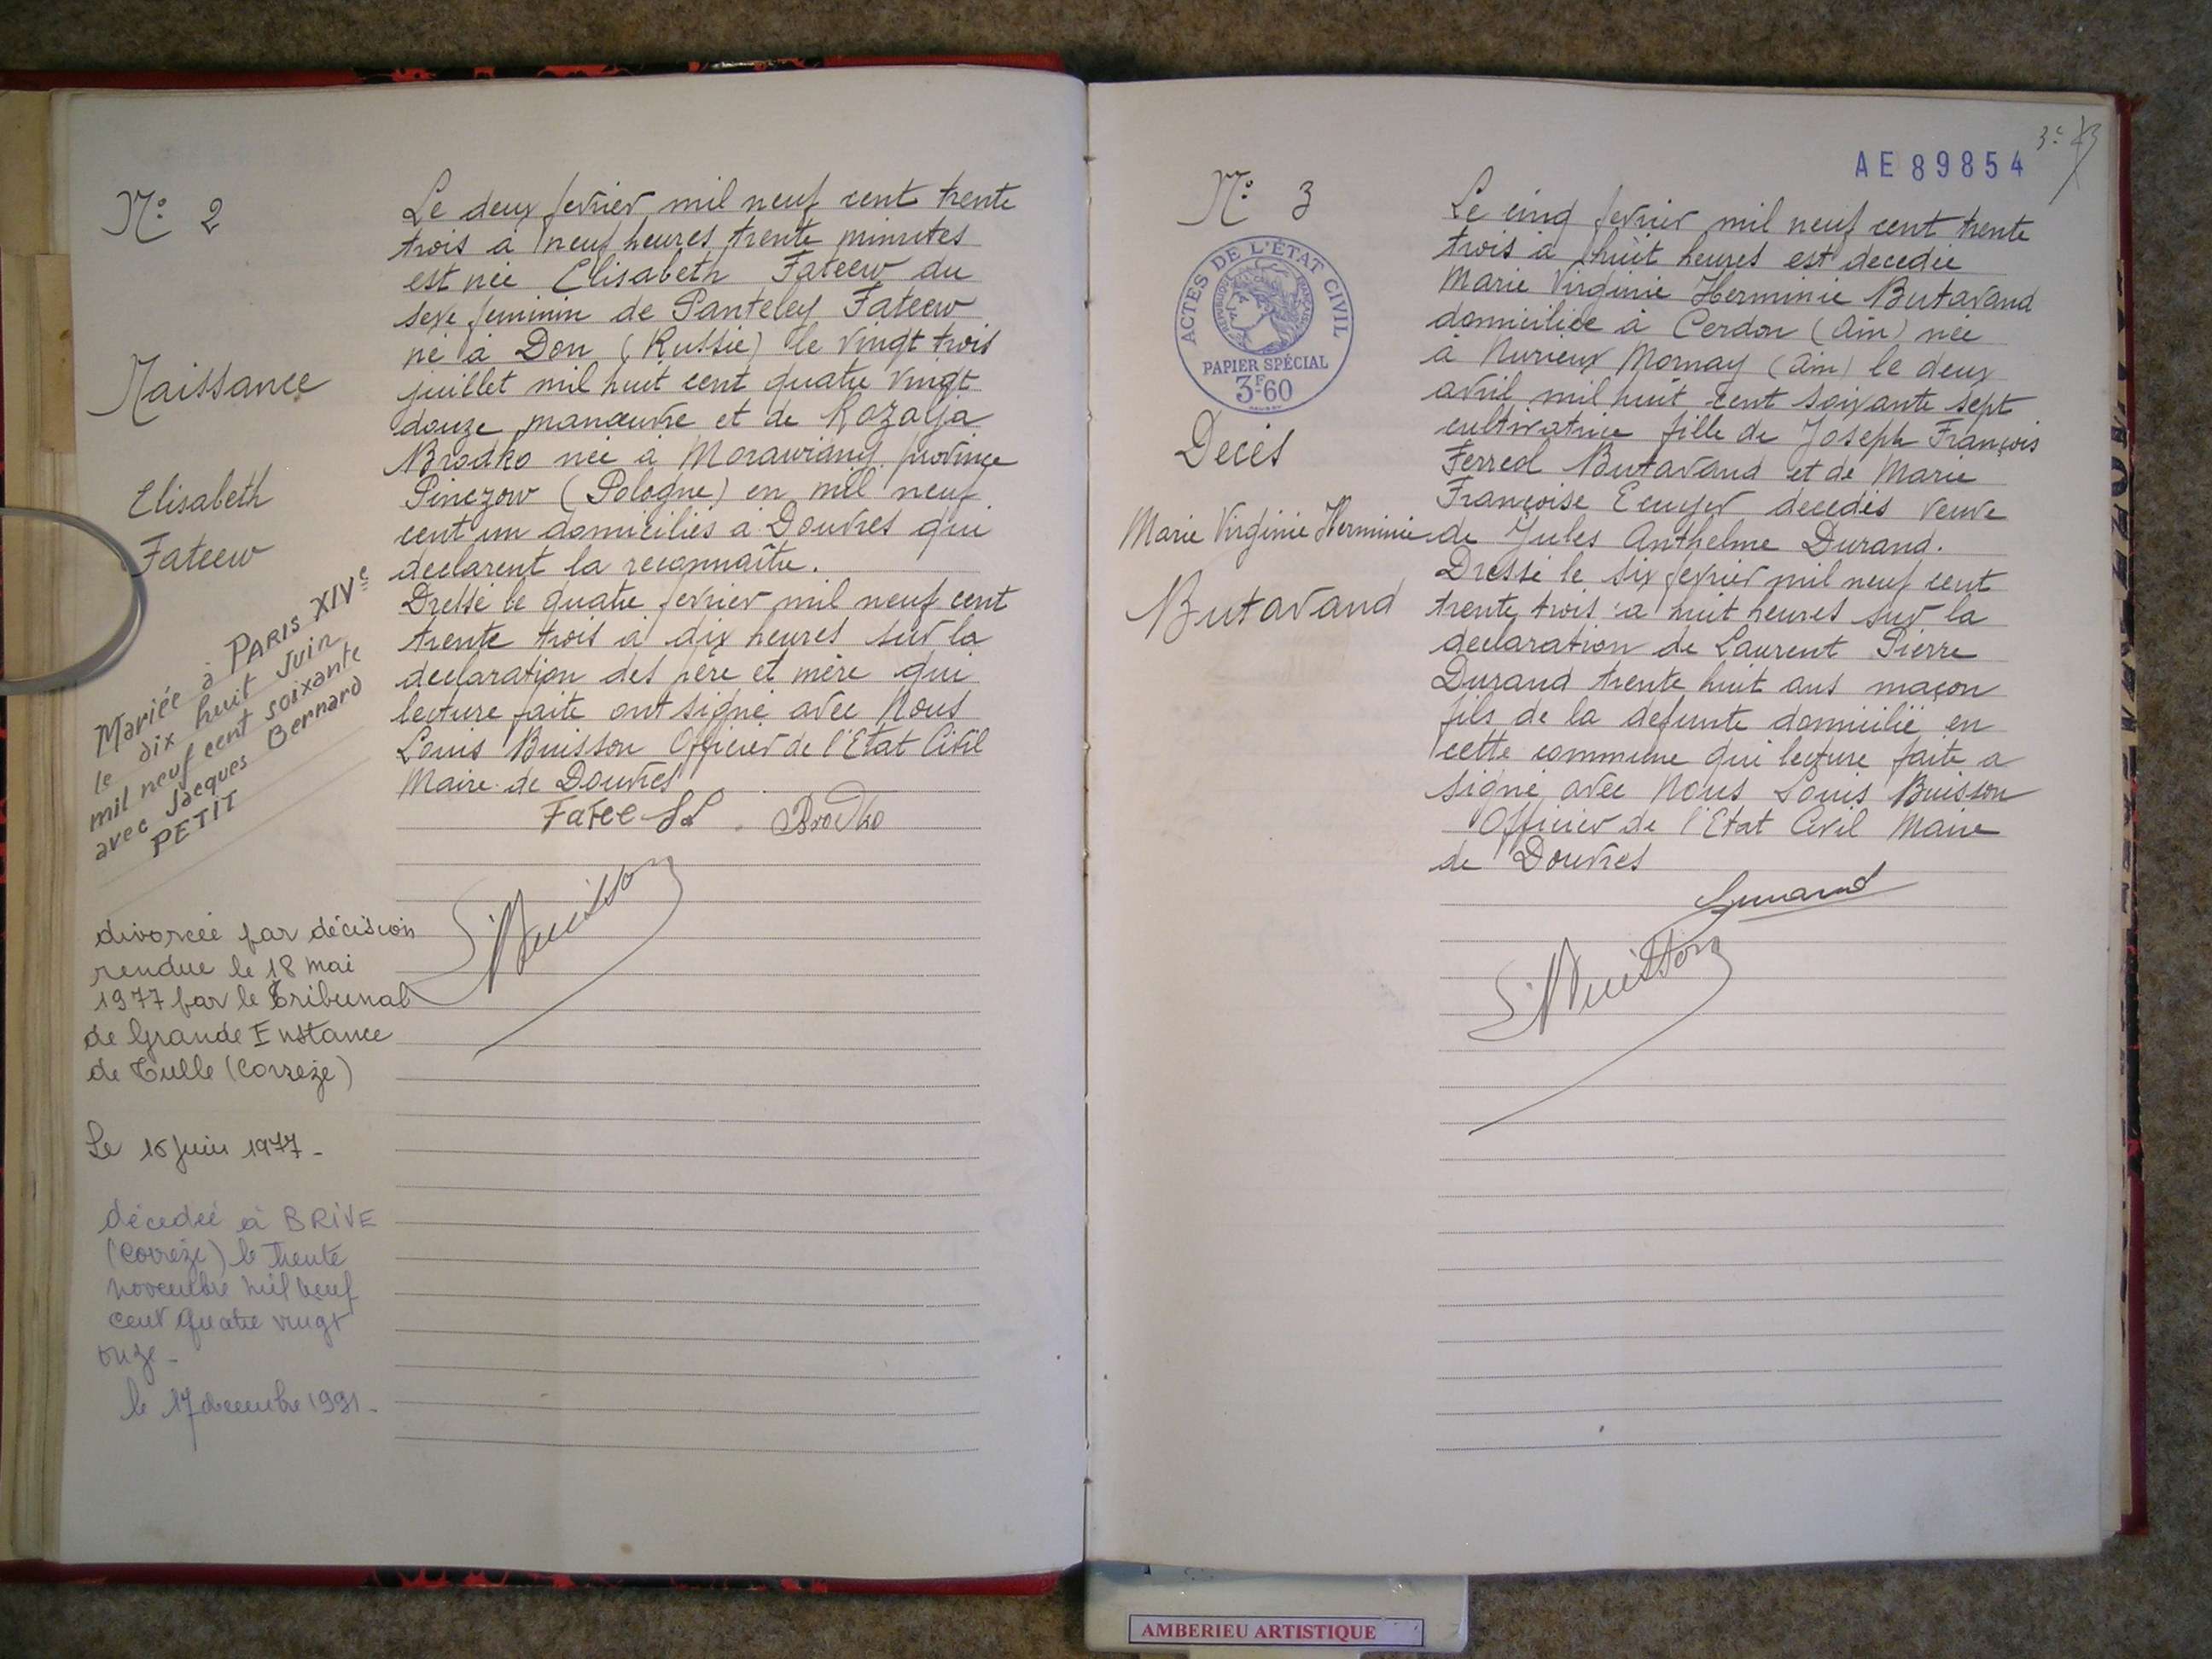 N° 2
Naissance
Elisabeth
Fateew
Mariée à PARIS XIVe
le dix huit Juin
mil neuf cent soixante
avec Jacques Bernard
PETIT
divorcée par décision
rendue le 18 mai
1977 par le Tribunal
de Grande Instance
de Tulle (Corrèze)
Le 16 juin 1977 -
décédée à BRIVE
(Corrèze) le trente
novembre mil neuf
cent quatre vingt
onze -
le 17 decembre 1991 -
Le deux fevrier mil neuf cent trente
trois à neuf heures trente minutes
est née Elisabeth Fateew du
sexe feminin de Panteley Fateew
né à Don (Russie) le vingt trois
juillet mil huit cent quatre vingt
douze manœuvre et de Rozalja
Brodko née à Morawiany province
Pinczow (Pologne) en mil neuf
cent un domiciliés à Douvres qui
declarent la reconnaître.
Dressé le quatre fevrier mil neuf cent
trente trois à dix heures sur la
declaration des père et mère qui
lecture faite ont signé avec Nous
Louis Buisson Officier de l'Etat Civil
Maire de Douvres
Brodko
L Buisson
AE 89854
N° 3
ACTES DE L'ÉTAT CIVIL
RÉPUBLIQUE FRANÇAISE
PAPIER SPÉCIAL
3F60
Décès
Marie Virginie Herminie
Butavand
Le cinq fevrier mil neuf cent trente
trois à huit heures est decedée
Marie Virginie Herminie Butavand
domiciliée à Cerdon (Ain) née
à Nurieux Mornay (Ain) le deux
avril mil huit cent soixante sept
cultivatrice fille de Joseph François
Ferreol Butavand et de Marie
Françoise Ecuyer decedés veuve
de Jules Anthelme Durand.
Dressé le six fevrier mil neuf cent
trente trois à huit heures sur la
declaration de Laurent Pierre
Durand trente huit ans maçon
fils de la defunte domicilié en
cette commune qui lecture faite a
signé avec Nous Louis Buisson
Officier de l'Etat Civil Maire
de Douvres
Durand
L Buisson
AMBERIEU ARTISTIQUE